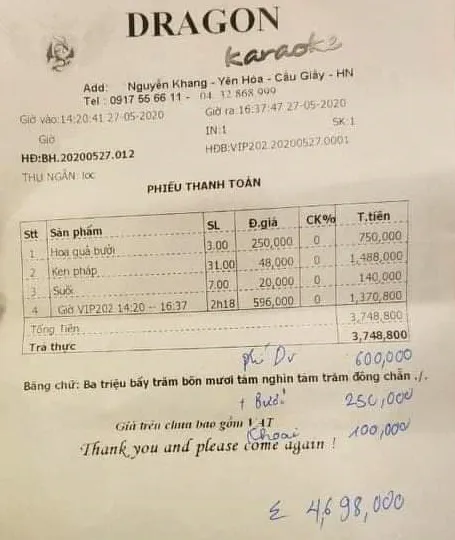 DRAGON
karaoke
Add: Nguyễn Khang - Yên Hòa - Cầu Giấy - HN
Tel : 0917 55 66 11 - 04. 32 868 999
Giờ vào:14:20:41 27-05-2020 Giờ ra:16:37:47 27-05-2020
Giờ IN:1 SK:1
HĐ:BH.20200527.012 HĐB:VIP202.20200527.0001
THU NGÂN: loc
PHIẾU THANH TOÁN
Stt Sản phẩm SL Đ.giá CK% T.tiền
1 Hoa quả bưởi 3.00 250,000 0 750,000
2 Ken pháp 31.00 48,000 0 1,488,000
3 Suối 7.00 20,000 0 140,000
4 Giờ VIP202 14:20 -- 16:37 2h18 596,000 0 1,370,800
Tổng Tiền 3,748,800
Trả thực 3,748,800
phí Dv 600,000
Bằng chữ: Ba triệu bẩy trăm bốn mươi tám nghìn tám trăm đồng chẵn ./.
1 Bưởi 250,000
Giá trên chưa bao gồm VAT
Khoai 100,000
Thank you and please come again !
Σ 4,698,000